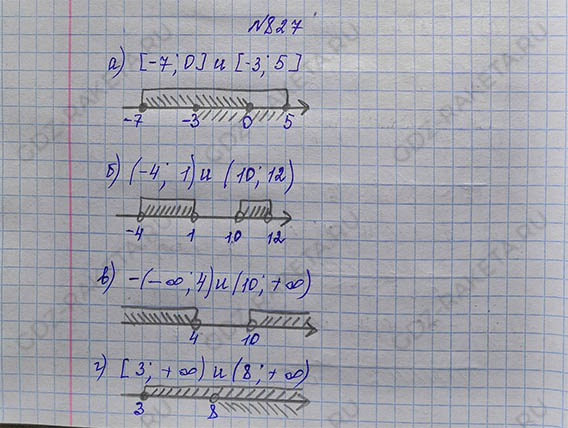 №827
а) [-7; 0] и [-3; 5]
-7 -3 0 5
б) (-4; 1) и (10; 12)
-4 1 10 12
в) -(-∞; 4) и (10; +∞)
4 10
г) [3; +∞) и (8; +∞)
3 8
GDZ-RAKETA.RU